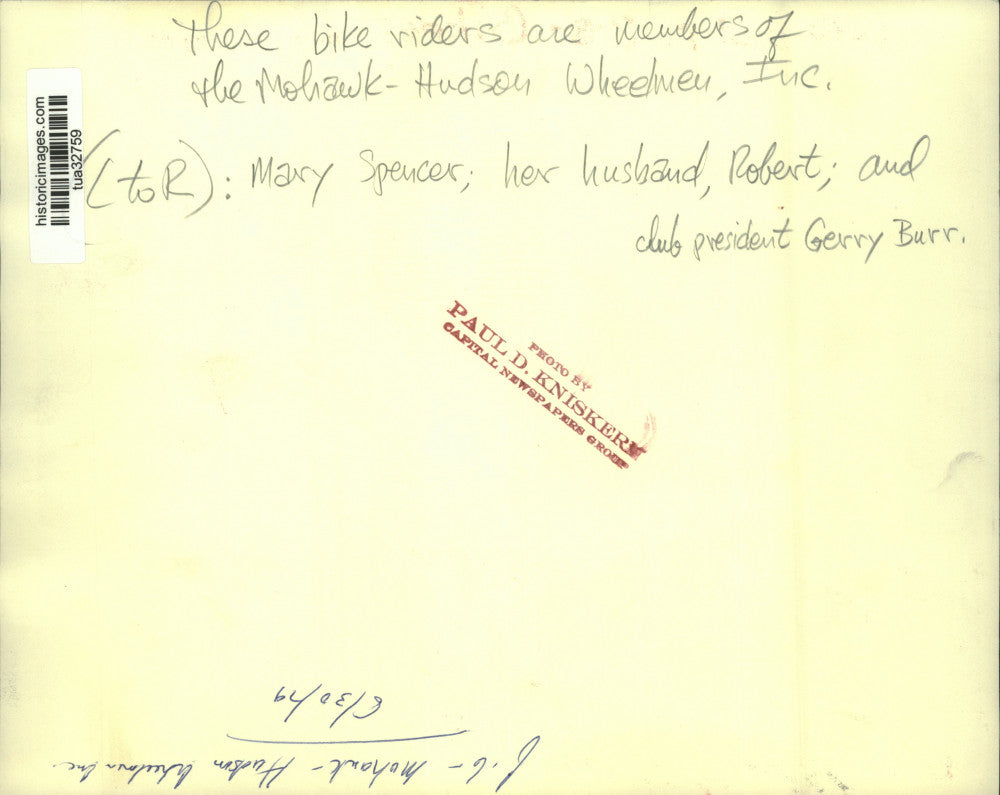 These bike riders are members of
the Mohawk-Hudson Wheelmen, Inc.
(L to R): Mary Spencer; her husband, Robert; and
club president Gerry Burr.
historicimages.com
tua32759
PHOTO BY
PAUL D. KNISKERN
CAPITAL NEWSPAPERS GROUP
Mohawk - Hudson Wheelmen Inc
/30/79